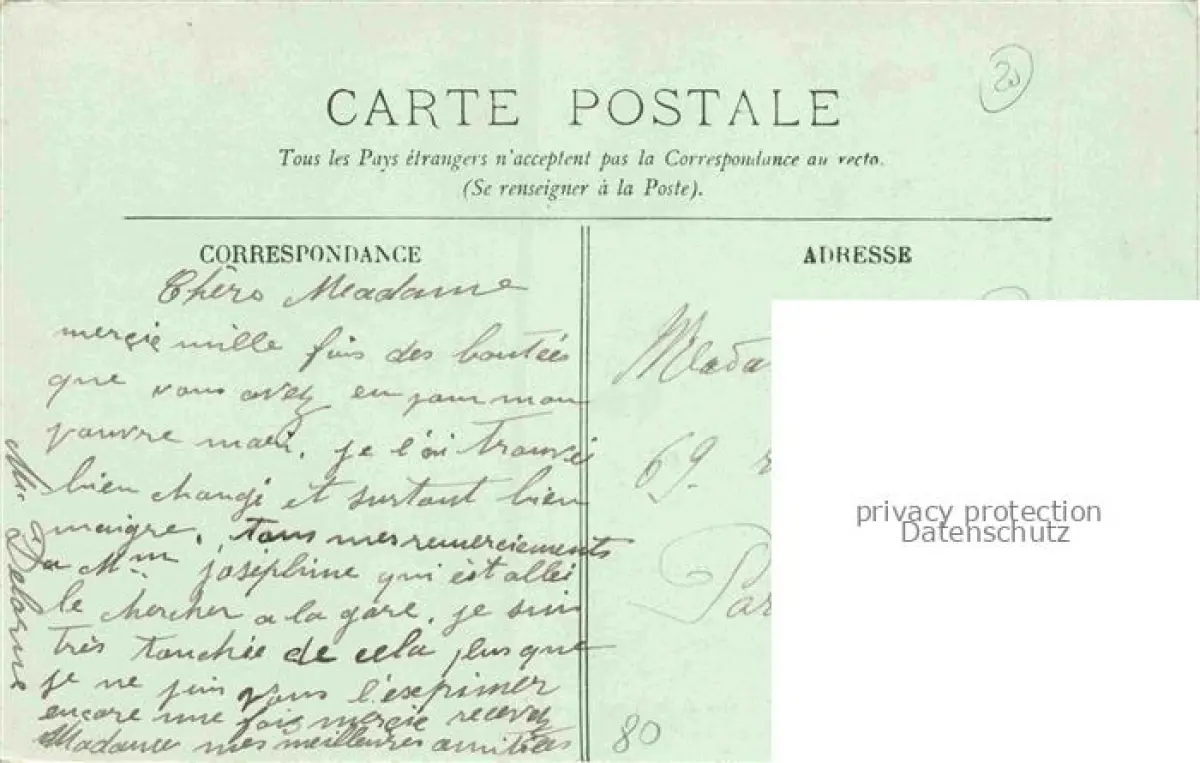 20
CARTE POSTALE
Tous les Pays étrangers n'acceptent pas la Correspondance au recto.
(Se renseigner à la Poste).
CORRESPONDANCE
Chère Madame
merçie mille fois des boutées
que vous avez eu pour mon
pauvre mari, je l'ai trouvé
bien changé et surtout bien
maigre, tous mes remerciements
a Mme joséphine qui est allée
le chercher a la gare. je suis
très touchée de cela plus que
je ne puis vous l'exprimer
encore une fois merçie recevez
Madame mes meilleures amitiées
Delorme
ADRESSE
Mada
69. r
Par
80
privacy protection
Datenschutz